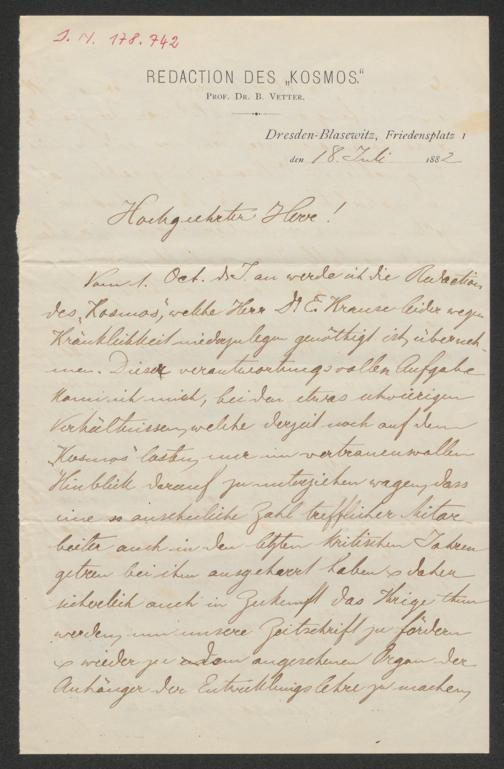 J. N. 178.742
REDACTION DES „KOSMOS.“
PROF. DR. B. VETTER.
Dresden-Blasewitz, Friedensplatz 1
den 18. Juli 1882
Hochgeehrter Herr!
Vom 1. Oct. d. J. an werde ich die Redaction
des „Kosmos“, welche Herr Dr E. Krause leider wegen
Kränklichkeit niederzulegen genöthigt ist, überneh-
men. Dieser verantwortungsvollen Aufgabe
kann ich mich, bei den etwas schwierigen
Verhältnissen, welche derzeit noch auf dem
„Kosmos“ lasten, nur im vertrauensvollen
Hinblick darauf zu unterziehen wagen, dass
eine so ansehnliche Zahl trefflicher Mitar-
beiter auch in den letzten kritischen Jahren
getreu bei ihm ausgeharrt haben & daher
sicherlich auch in Zukunft das Ihrige thun
werden, um unsere Zeitschrift zu fördern
& wieder zu dem angesehenen Organ der
Anhänger der Entwicklungslehre zu machen,